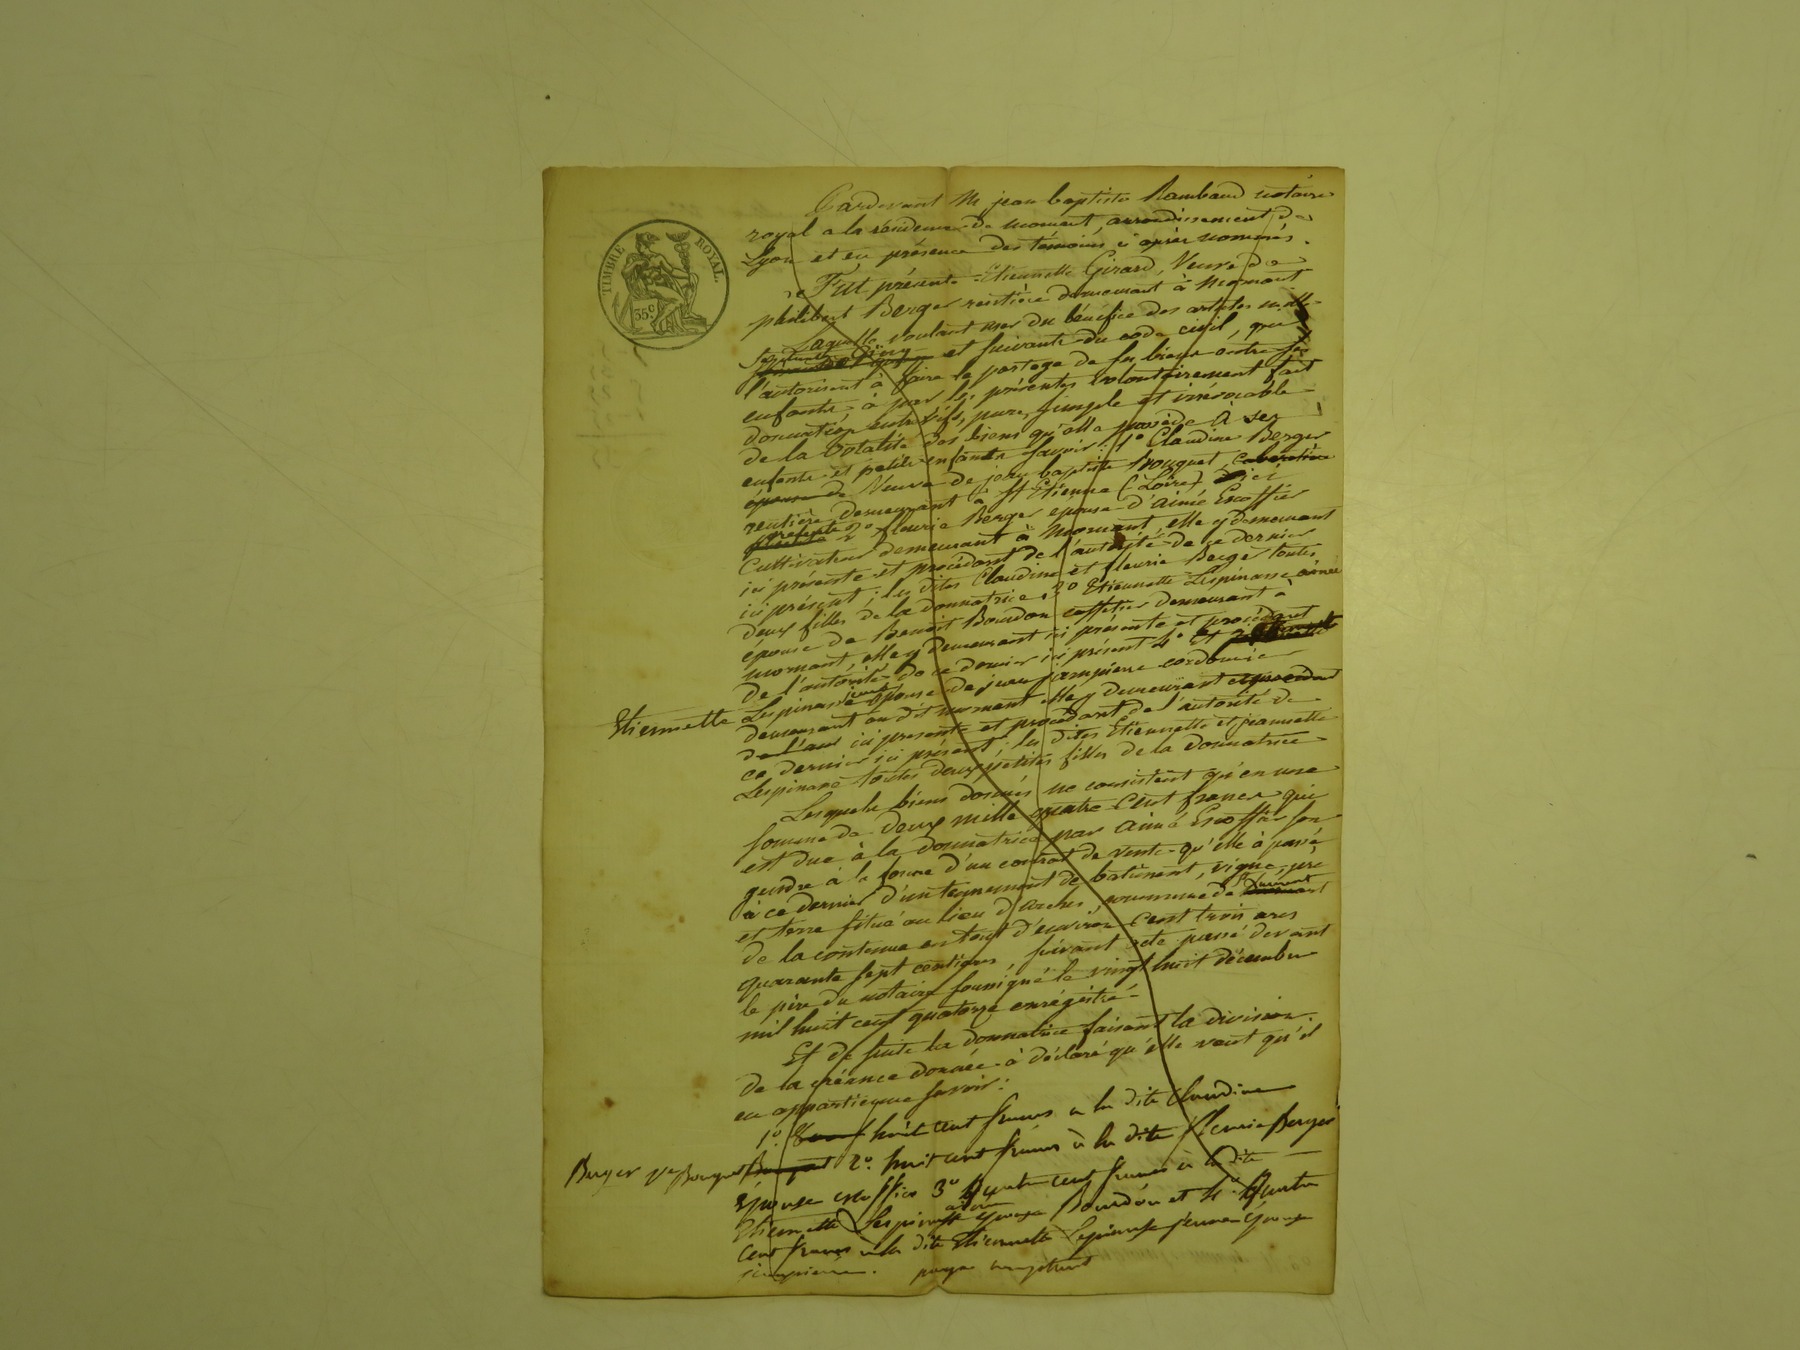 TIMBRE ROYAL.
35 c
Pardevant Me jean baptiste Rambaud notaire
royal a la résidence de mornant, arrondissement de
Lyon et en présence des témoins ci après nommés.
Fut présente Etiennette Girard, Veuve de
philibert Berger rentière demeurant à Mornant.
Laquelle voulant user du bénéfice des articles mille
et suivants du code civil, qui
l'autorisent à faire le partage de ses biens entre ses
enfants, à par les présentes volontairement fait
donnation entre vifs, pure, simple et irrévocable
de la totalité des biens qu'elle possède à ses
enfants et petits enfants savoir: 1o Claudine Berger
épouse de Veuve de jean baptiste Bouquet, cabaretière
rentière demeurant à St Etienne (Loire) ici
présente 2o fleurie Berger épouse d'aimé Escoffier
Cultivateur demeurant à Mornant, elle y demeurant
ici présente et procédant de l'autorité de ce dernier
ici présent; les dites Claudine et fleurie Berger toutes
deux filles de la donnatrice, 3o Etiennette Lespinasse ainée
épouse de Benoit Bourdon caffetier demeurant à
mornant, elle y demeurant ici présente et procédant
de l'autorité de ce dernier ici présent 4o Et
Etiennette Lespinasse jeune épouse de jean jampierre cordonnier
demeurant au dit mornant elle y demeurant et procédant
de l'aut ici présente et procédant de l'autorité de
ce dernier ici présent; les dites Etiennette et jeannette
Lespinasse toutes deux petites filles de la donnatrice
Lesquels biens donnés ne consistent qu'en une
somme de deux mille quatre cent francs qui
est due à la donnatrice par aimé Escoffier son
gendre à la forme d'un contrat de vente qu'elle à passé
à ce dernier d'un tennement de batiment, vigne, pré
et terre situé au lieu d'arches, commune de St Laurent
de la contenue en tout d'environ cent trois ares
quarante sept centiares, suivant acte passé devant
le père du notaire soussigné le vingt huit décembre
mil huit cent quatorze enrégistré.
Et de suite la donnatrice faisant la division
de la créance donnée à déclaré qu'elle veut qu'il
en appartienne savoir:
1o huit cent francs a la dite Claudine
Berger Ve Bouquet 2o huit cent francs à la dite fleurie Berger
épouse escoffier 3o quatre cent francs à la dite
Etiennette Lespinasse ainée épouse Bourdon et 4o quatre
cent francs à la dite Etiennette Lespinasse jeune épouse
jampierre.